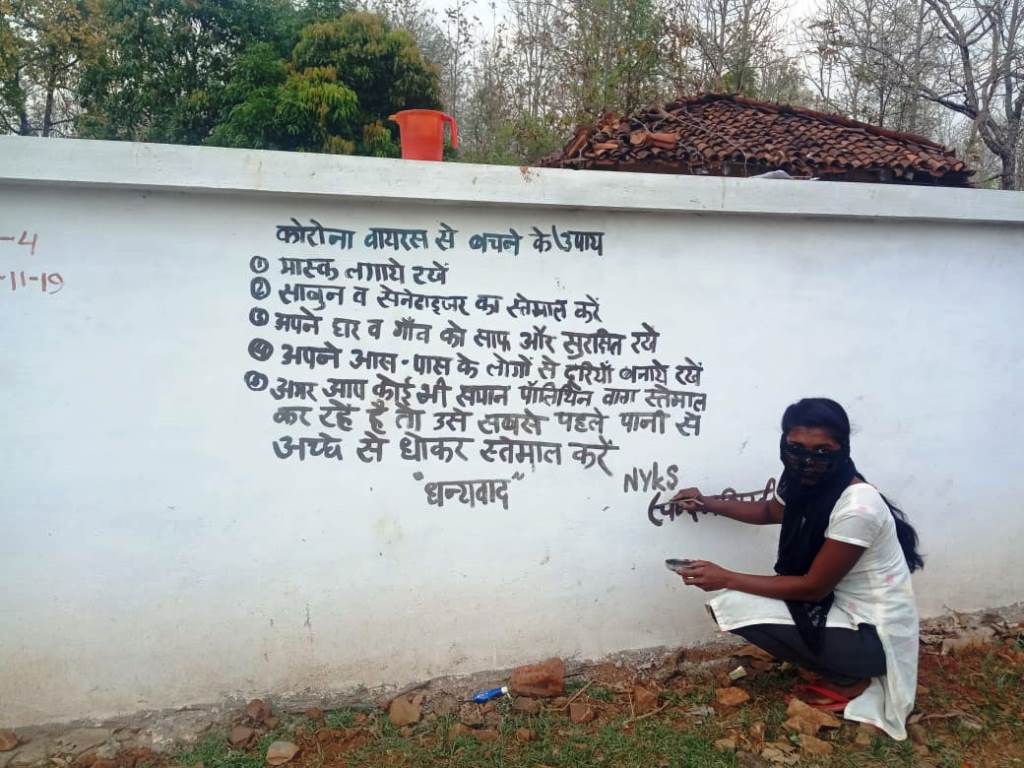 -4
-11-19
कोरोना वायरस से बचने के उपाय
① मास्क लगाये रखें
② साबुन व सेनेटाइजर का स्तेमाल करें
③ अपने घर व गाँव को साफ और सुरक्षित रखे
④ अपने आस-पास के लोगों से दूरियाँ बनाये रखें
⑤ अगर आप कोई भी सपान पॉलिथिन वाग स्तेमाल
कर रहें हैं तो उसे सबसे पहले पानी से
अच्छे से धोकर स्तेमाल करें
"धन्यवाद"
NYKS